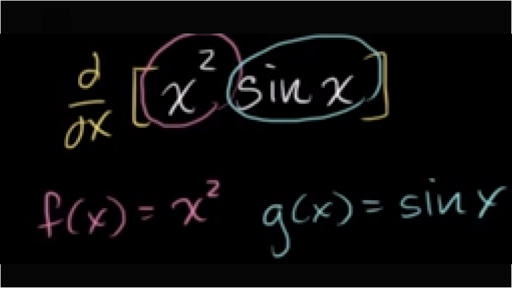 d/dx [x² sin x]
f(x) = x² g(x) = sin x